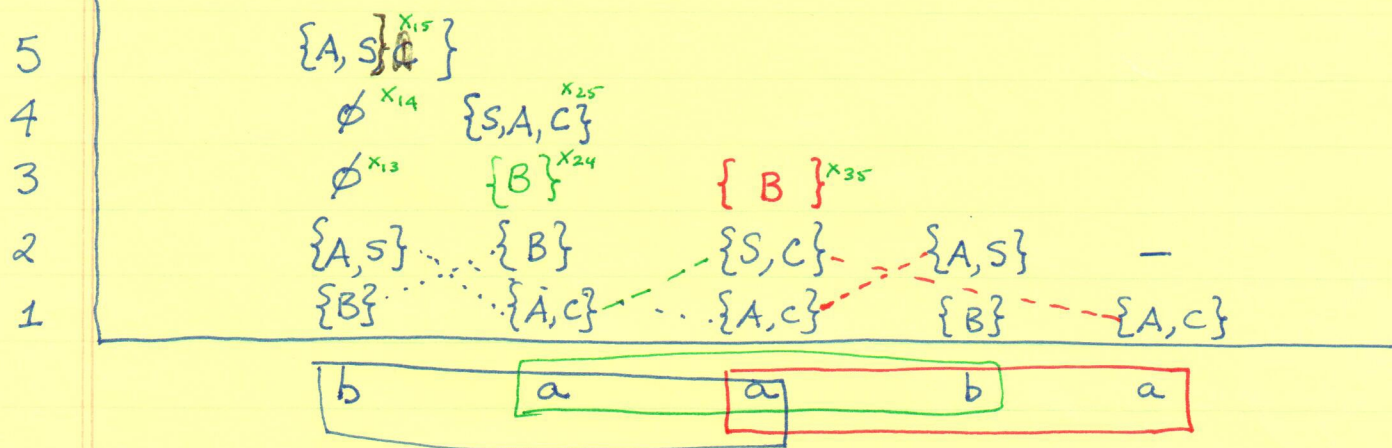 5 {A, S} } x₁₅
4 ∅ x₁₄ {S,A,C} x₂₅
3 ∅ x₁₃ {B} x₂₄ { B } x₃₅
2 {A,S} {B} {S,C} {A,S} —
1 {B} {A,C} {A,C} {B} {A,C}
b a a b a